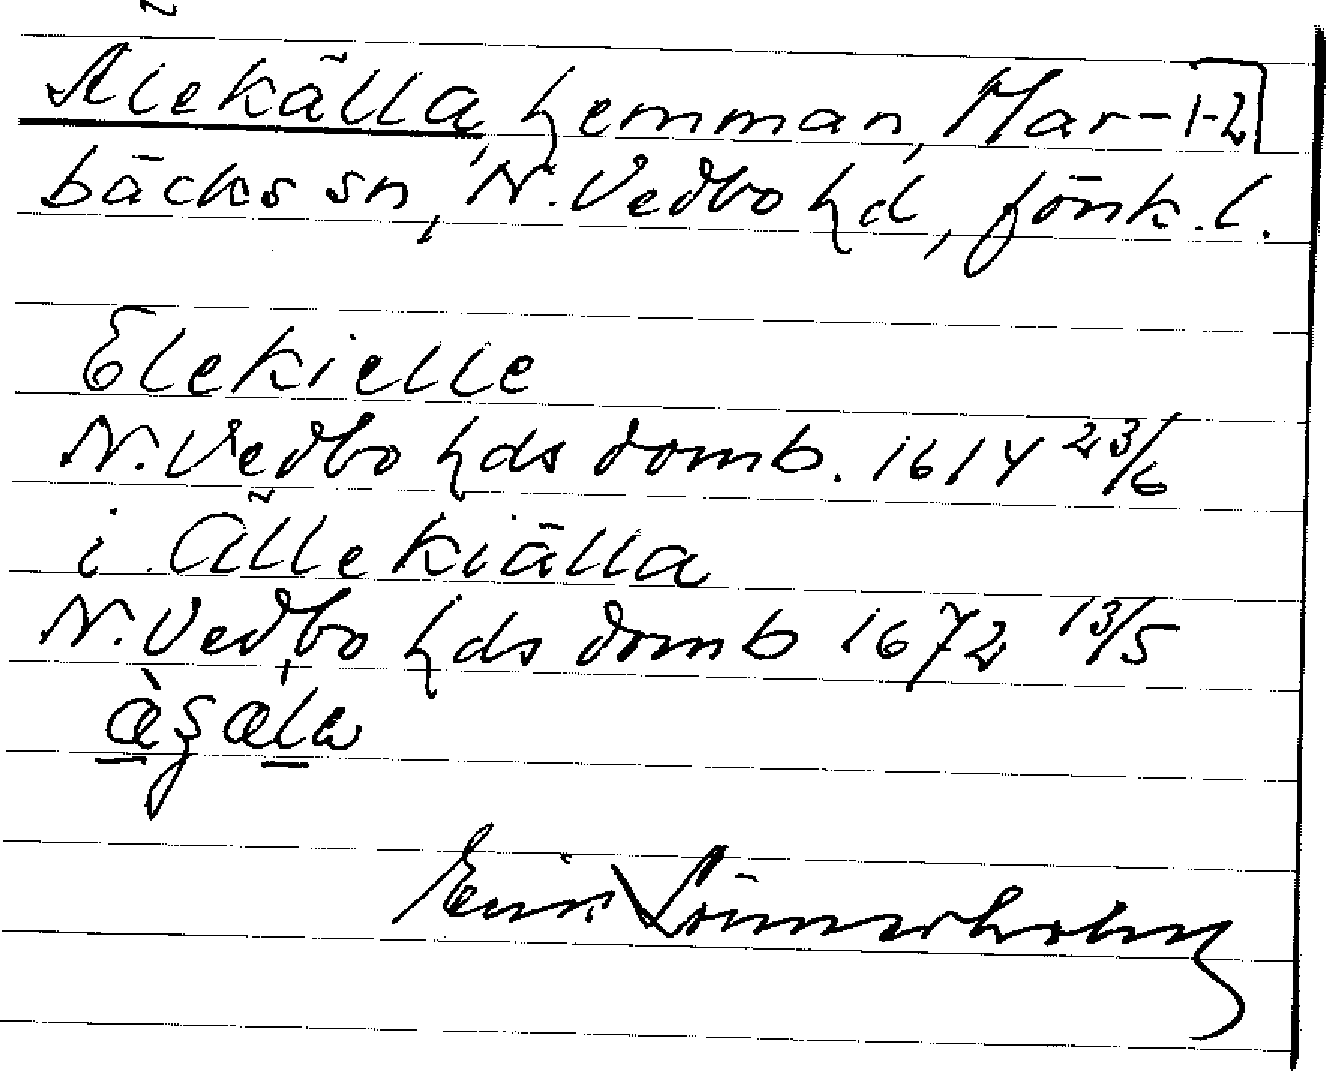 Alekälla, hemman, Mar- 1-2
bäcks sn, N. Vedbo hd, Jönk. l.
Elekielle
N. Vedbo hds domb. 1614 23/6
i Ållekiälla
N. Vedbo hds domb 1672 13/5
Erik Lönnerholm